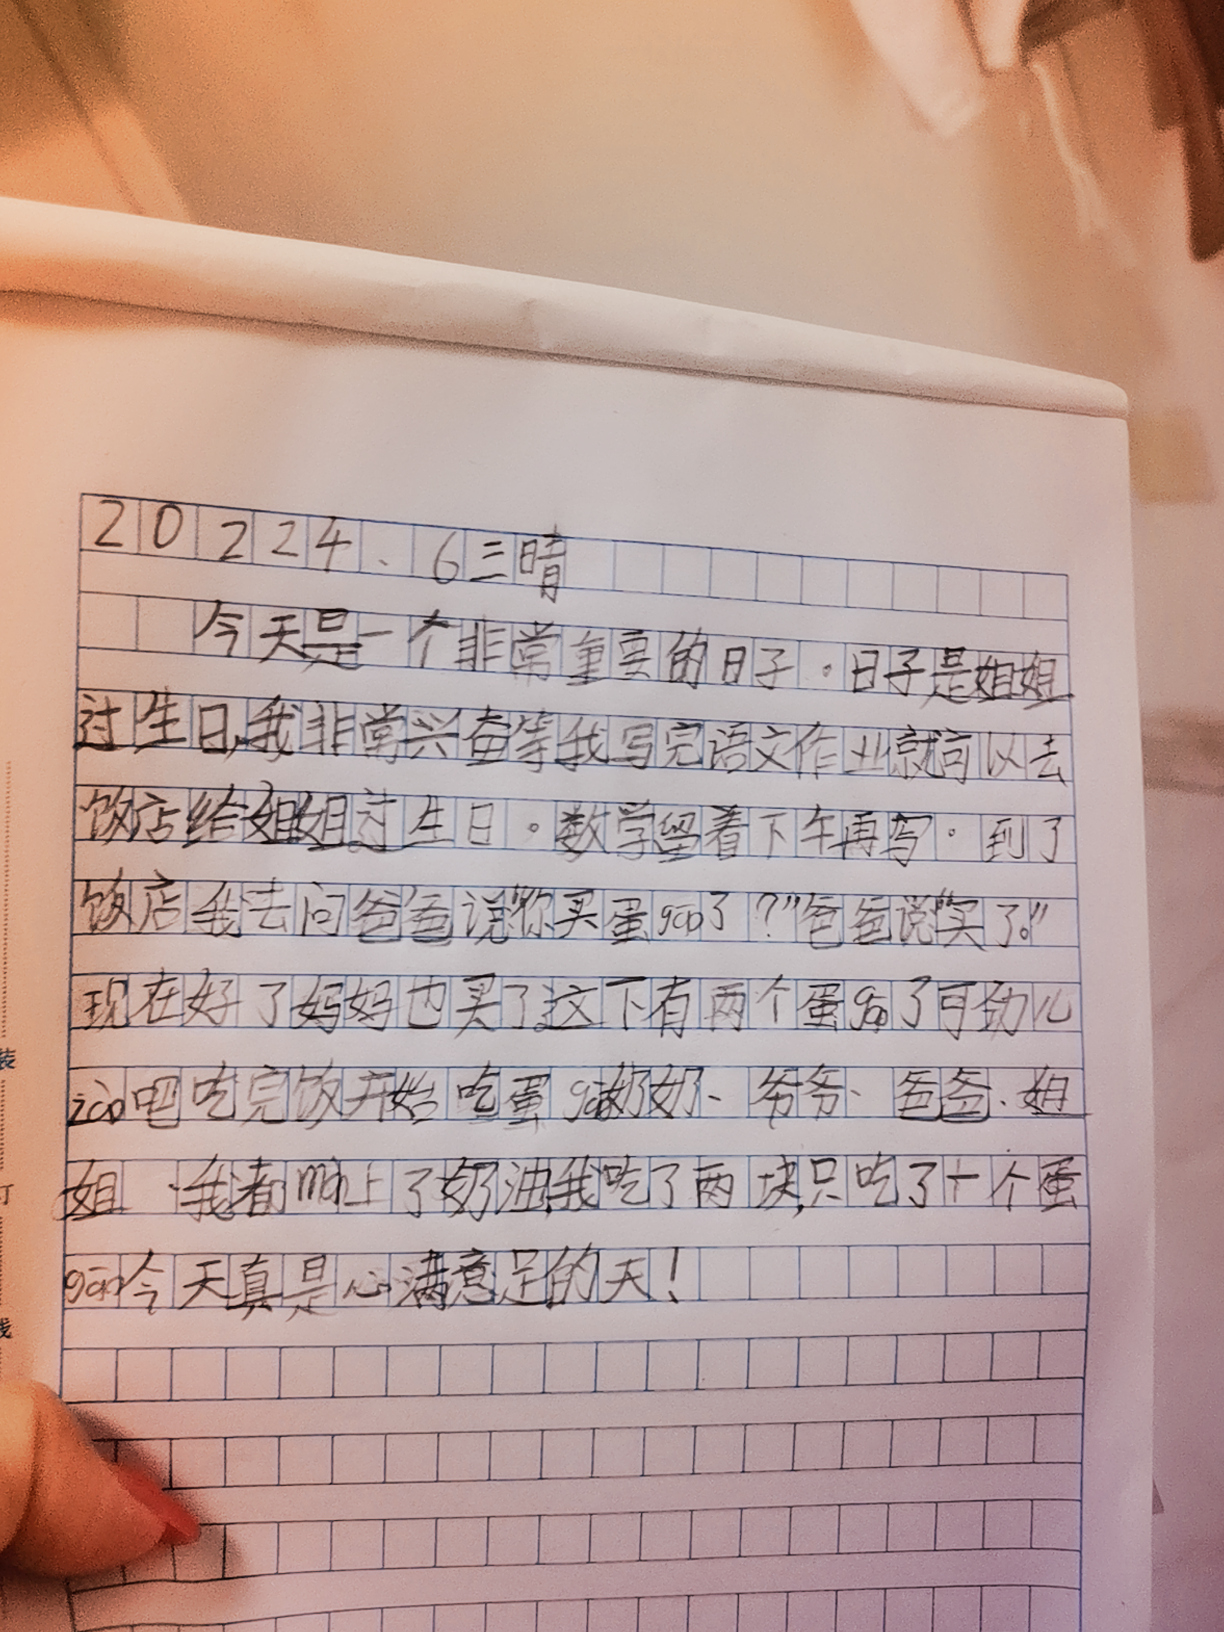 20224、6三晴
今天是一个非常重要的日子。日子是姐姐
过生日,我非常兴奋等我写完语文作业就可以去
饭店给姐姐过生日。数学留着下午再写。到了
饭店我去问爸爸说“你买蛋gāo了?”爸爸说“买了。”
现在好了妈妈也买了这下有两个蛋gāo了可幼儿
zāo吧吃完饭开始吃蛋gāo奶奶、爷爷、爸爸、姐
姐、我都mǎn上了奶油,我吃了两块,只吃了十个蛋
gāo今天真是心满意足的天!
装
订
线